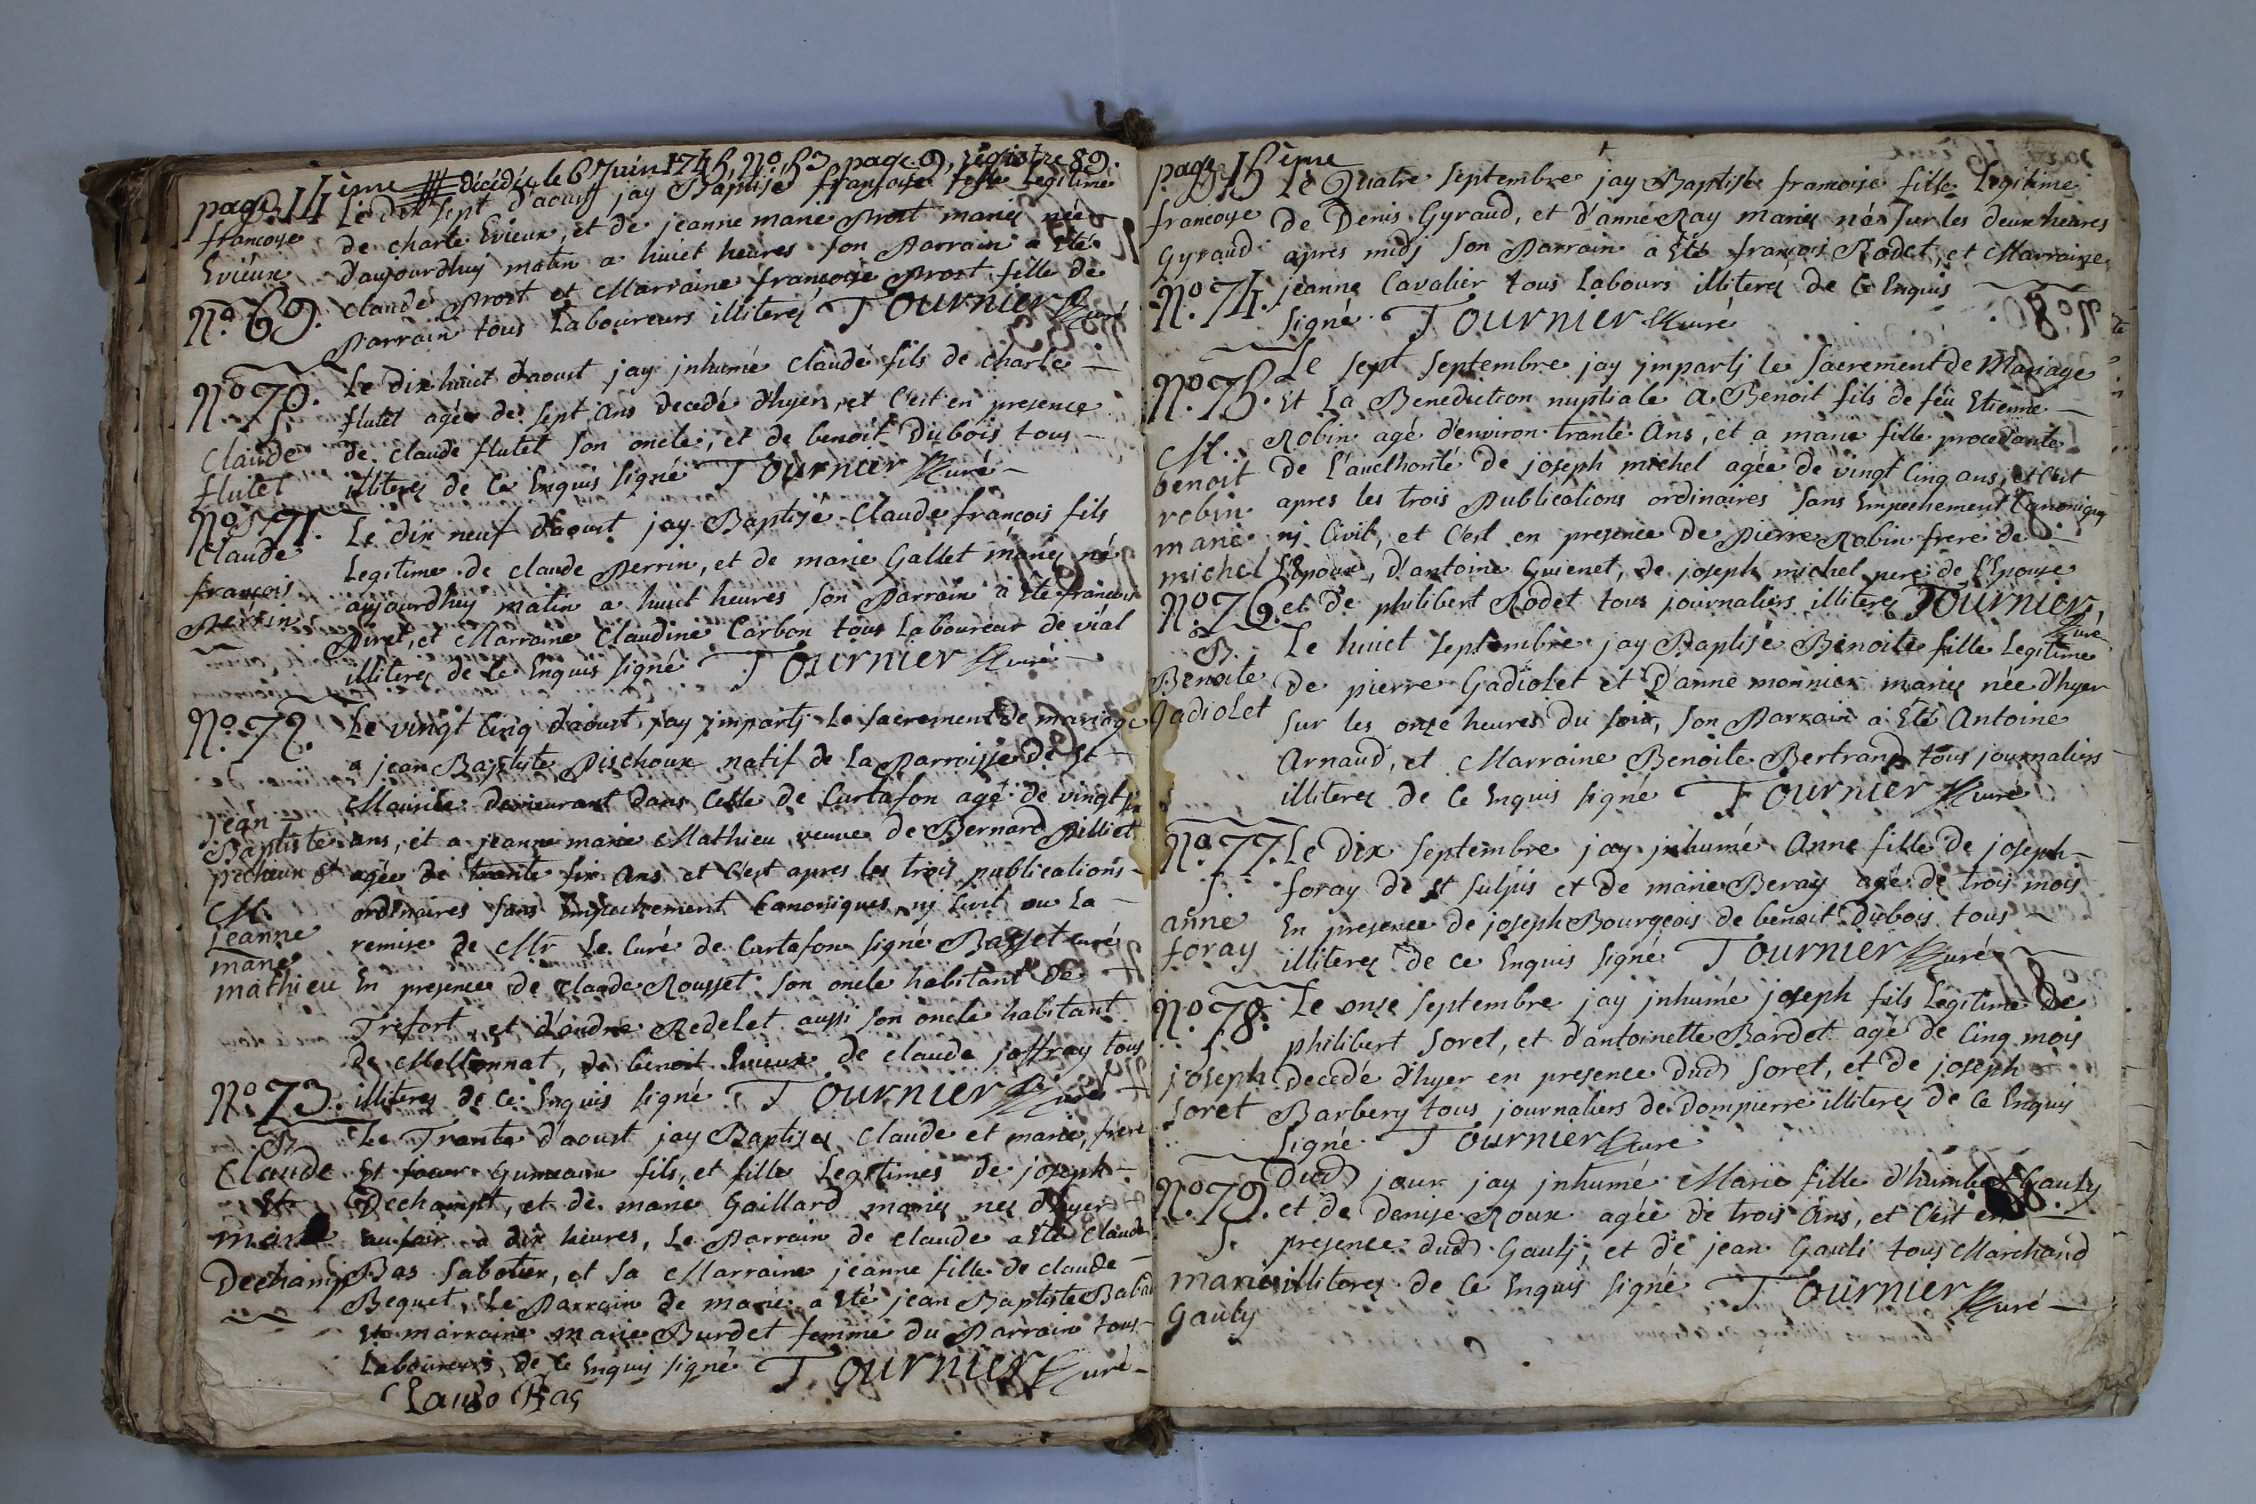 page 14ème décédée le 6 Juin 1745, No. 53 page 9, registre 89.
françoise
Evieux
No. 69.
Le dix sept d'aoust jay Baptisé françoise fille Legitime
de charle Evieux, et de jeanne marie Prost mariés née
d'aujourdhuy matin a huict heures son Parrain a Eté
claude Prost et Marraine françoise Prost fille de
Parrain tous Laboureurs illiterés Tournier Curé
No. 70.
S.
Claude
flutet
Le dix huict d'aoust jay jnhumé claude fils de charle
flutet agée de sept Ans decedé d'hyer, et C'est en presence
de claude flutet son oncle, et de benoit Dubois tous
illiterés de Ce Enquis signé Tournier Curé
No. 71.
Claude
françois
Perrin
Le dix neuf d'aoust jay Baptisé Claude francois fils
Legitime de claude Perrin, et de marie Gallet mariés né
aujourdhuy matin a huict heures son Parrain a Eté francois
Piret, et Marraine Claudine Carbon tous Laboureur de vial
illiterés de Ce Enquis signé Tournier Curé
No. 72.
jean
Baptiste
pichoux &
M.
Jeanne
marie
mathieu
Le vingt Cinq d'aoust jay jmparti Le sacrement de mariage
a jean Baptiste Pischoux natif de La Parroisse de St
Maurice demeurant dans Celle de Curtafon agé de vingt six
ans, et a jeanne marie Mathieu veuve de Bernard Pilliet
agée de trante six Ans et C'est apres les trois publications
ordinaires sans Empechement Canoniques nj Civil vu La
remise de Mr Le Curé de Curtafon signé Basset curé
En presence de claude Rousset son oncle habitant de
Trefort, et d'andre Redelet aussi son oncle habitant
de Mellonnat, de benoit Evieux de claude jaffray tous
illiterés de Ce Enquis signé Tournier Curé
No. 73.
B.
Claude
Et
marie
Dechamp
Le Trante d'aoust jay Baptisés Claude et marie, frere
Et soeur Gumeaux fils, et fille Legitimes de joseph
Dechampt, et de marie Gaillard mariés nes d'hyer
au soir a dix heures, Le Parrain de claude a Eté Claude
Bas Sabotier, et sa Marraine jeanne fille de claude
Bequet, Le Parrain de marie a Eté jean Baptiste Babad
Et marraine marie Burdet femme du Parrain tous
Laboureurs de Ce Enquis signé Tournier Curé
Claude Bas
page 15ème
francoise
Gyraud
No. 74.
Le Quatre septembre jay Baptisé francoise fille Legitime
de Denis Gyraud, et d'anne Ray mariés née sur les deux heures
apres midj son Parrain a Eté françois Rodet, et Marraine
jeanne Cavalier tous Labours illiterés de Ce Enquis
signé Tournier Curé
No. 75.
M.
benoit
robin
marie
michel
Le sept septembre jay jmpartj le Sacrement de Mariage
Et La Benediction nuptiale A Benoit fils de féu Etienne
Robin agé d'environ trante Ans, et a marie fille procedante
de L'aucthorité de joseph michel agée de vingt Cinq ans, et C'est
apres les trois Publications ordinaires sans Empechement Canoniques
nj Civil, et C'est en presence de Pierre Robin frere de
L'Epoux, d'antoine Guienet, de joseph michel pere de L'Epouse
et de philibert Rodet tous journaliers illiterés Tournier
Curé
No. 76.
B.
Benoite
Gadiolet
Le huict septembre jay Baptisé Benoite fille Legitime
de pierre Gadiolet et D'anne monnier mariés née d'hyer
sur les onze heures du soir, son Parrain a Eté Antoine
Arnaud, et Marraine Benoite Bertrand tous journaliers
illiterés de Ce Enquis signé Tournier Curé
No. 77.
S.
anne
foray
Le Dix septembre jay jnhumé Anne fille de joseph
foray de St sulpis et de marie Beray agé de trois mois
En presence de joseph Bourgeois de benoit Dubois tous
illiterés de Ce Enquis signé Tournier Curé
No. 78.
S.
joseph
Soret
Le onze septembre jay jnhumé joseph fils Legitime de
philibert Soret, et d'antoinette Bardet agé de Cinq mois
decedé d'hyer en presence dud Soret, et de joseph
Barbery tous journaliers de Dompierre illiterés de Ce Enquis
signé Tournier Curé
No. 79.
S.
marie
Gauly
Dud jour jay jnhumé Marie fille d'humbert Gauly
et de Denise Roux agée de trois Ans, et C'est en
presence dud Gaulj, et de jean Gauli tous Marchand
illiterés de Ce Enquis signé Tournier Curé